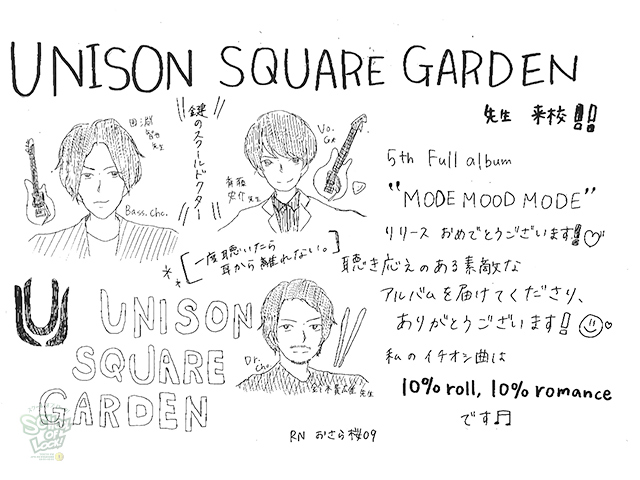 UNISON SQUARE GARDEN
先生 来校!!
田淵
智也
先生
Bass. Cho.
鍵のスクールドクター
Vo.
Gt.
斎藤
宏介 先生
5th Full album
"MODE MOOD MODE"
リリース おめでとうございます!
一度聴いたら
耳から離れない。
聴き応えのある素敵な
アルバムを届けてくださり、
ありがとうございます!
私のイチオシ曲は
10% roll, 10% romance
です♬
UNISON
SQUARE
GARDEN
Dr.
Cho.
鈴木貴雄 先生
RN おさら桜09
SCHOOL OF LOCK!